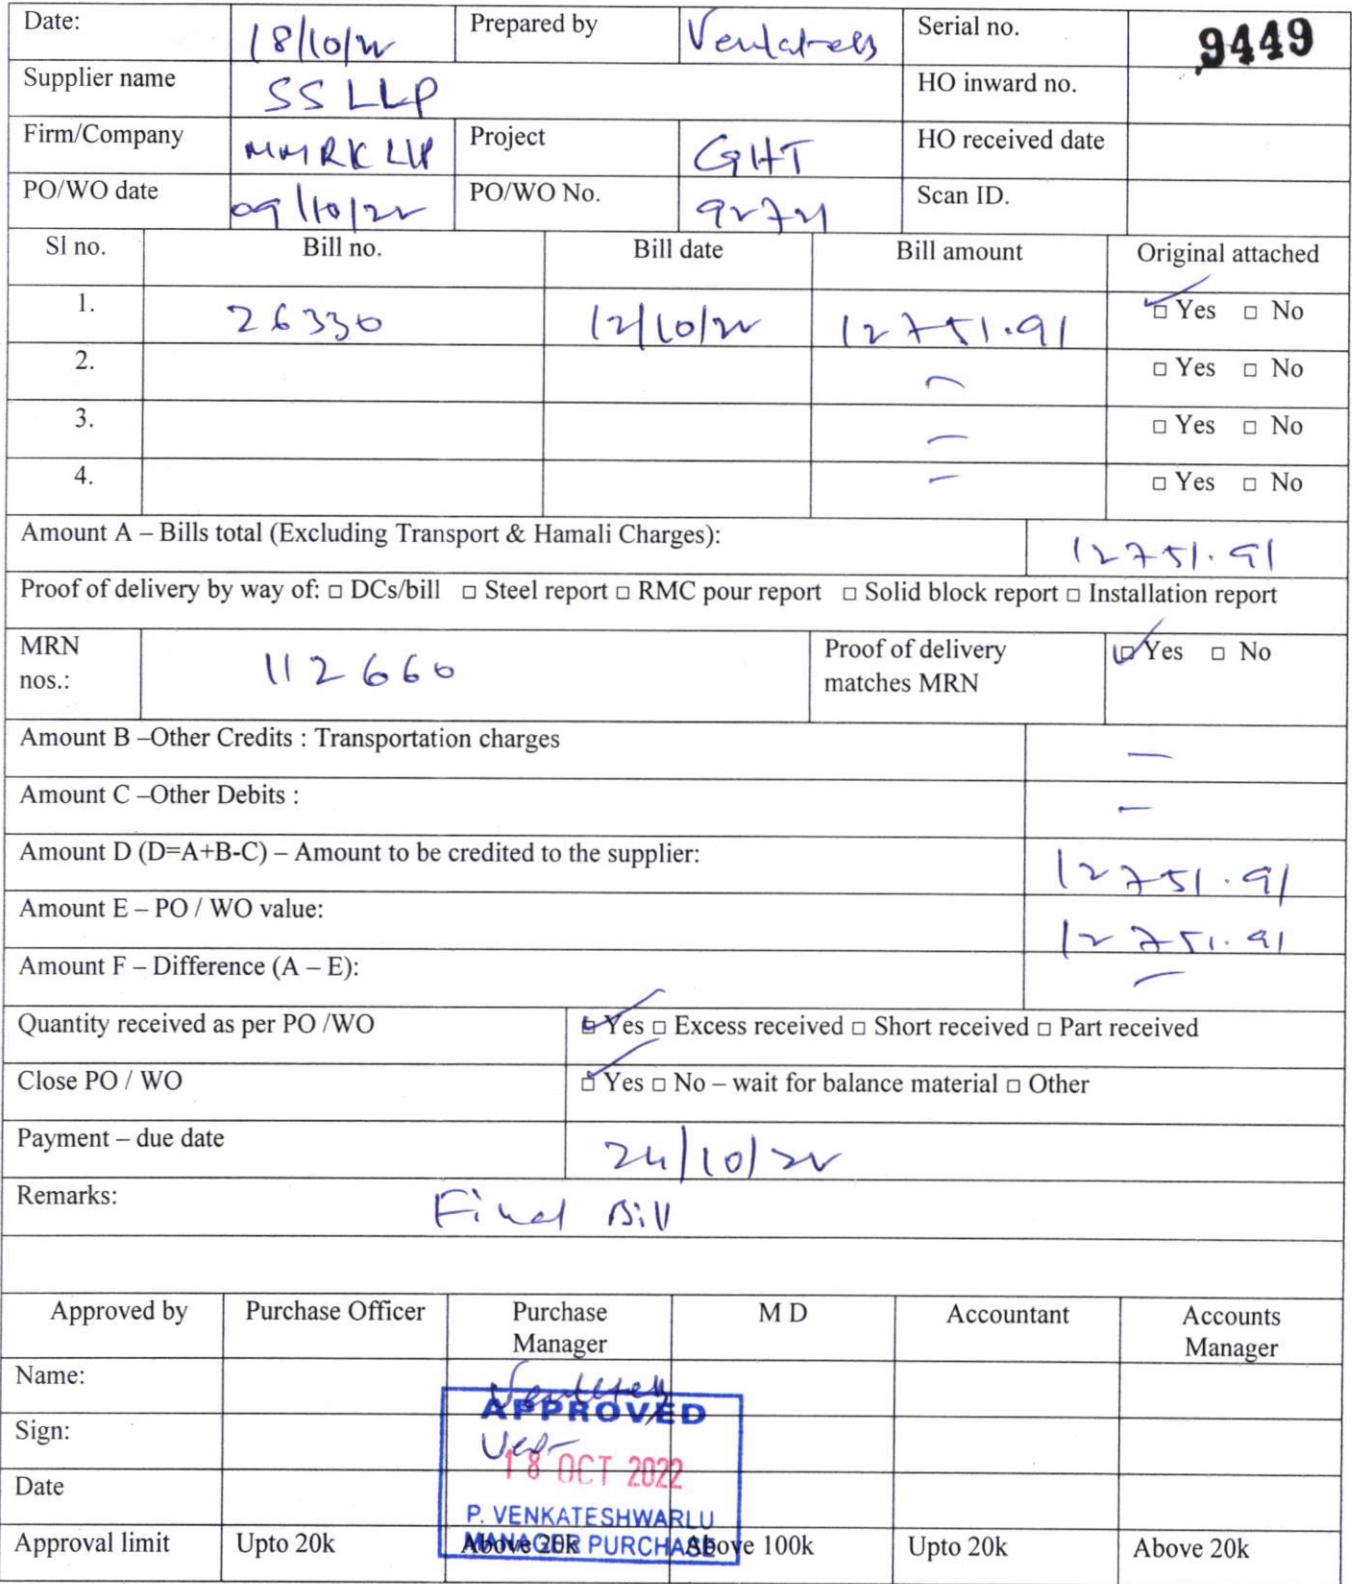 Date: 18/10/22 Prepared by Venkatesh Serial no. 9449
Supplier name SS LLP HO inward no.
Firm/Company MMRK LLP Project GHT HO received date
PO/WO date 09/10/22 PO/WO No. Scan ID.
Sl no. Bill no. Bill date Bill amount Original attached
1. 26330 12/10/22 12751.91 □ Yes □ No
2. – □ Yes □ No
3. – □ Yes □ No
4. – □ Yes □ No
Amount A – Bills total (Excluding Transport & Hamali Charges): 12751.91
Proof of delivery by way of: □ DCs/bill □ Steel report □ RMC pour report □ Solid block report □ Installation report
MRN nos.: 112660 Proof of delivery matches MRN □ Yes □ No
Amount B –Other Credits : Transportation charges –
Amount C –Other Debits : –
Amount D (D=A+B-C) – Amount to be credited to the supplier: 12751.91
Amount E – PO / WO value: 12751.91
Amount F – Difference (A – E): –
Quantity received as per PO /WO □ Yes □ Excess received □ Short received □ Part received
Close PO / WO □ Yes □ No – wait for balance material □ Other
Payment – due date 24/10/22
Remarks: Final Bill
Approved by Purchase Officer Purchase Manager M D Accountant Accounts Manager
Name: Venkatesh
APPROVED
Sign:
18 OCT 2022
Date
P. VENKATESHWARLU
MANAGER PURCHASE
Approval limit Upto 20k Above 20k Above 100k Upto 20k Above 20k